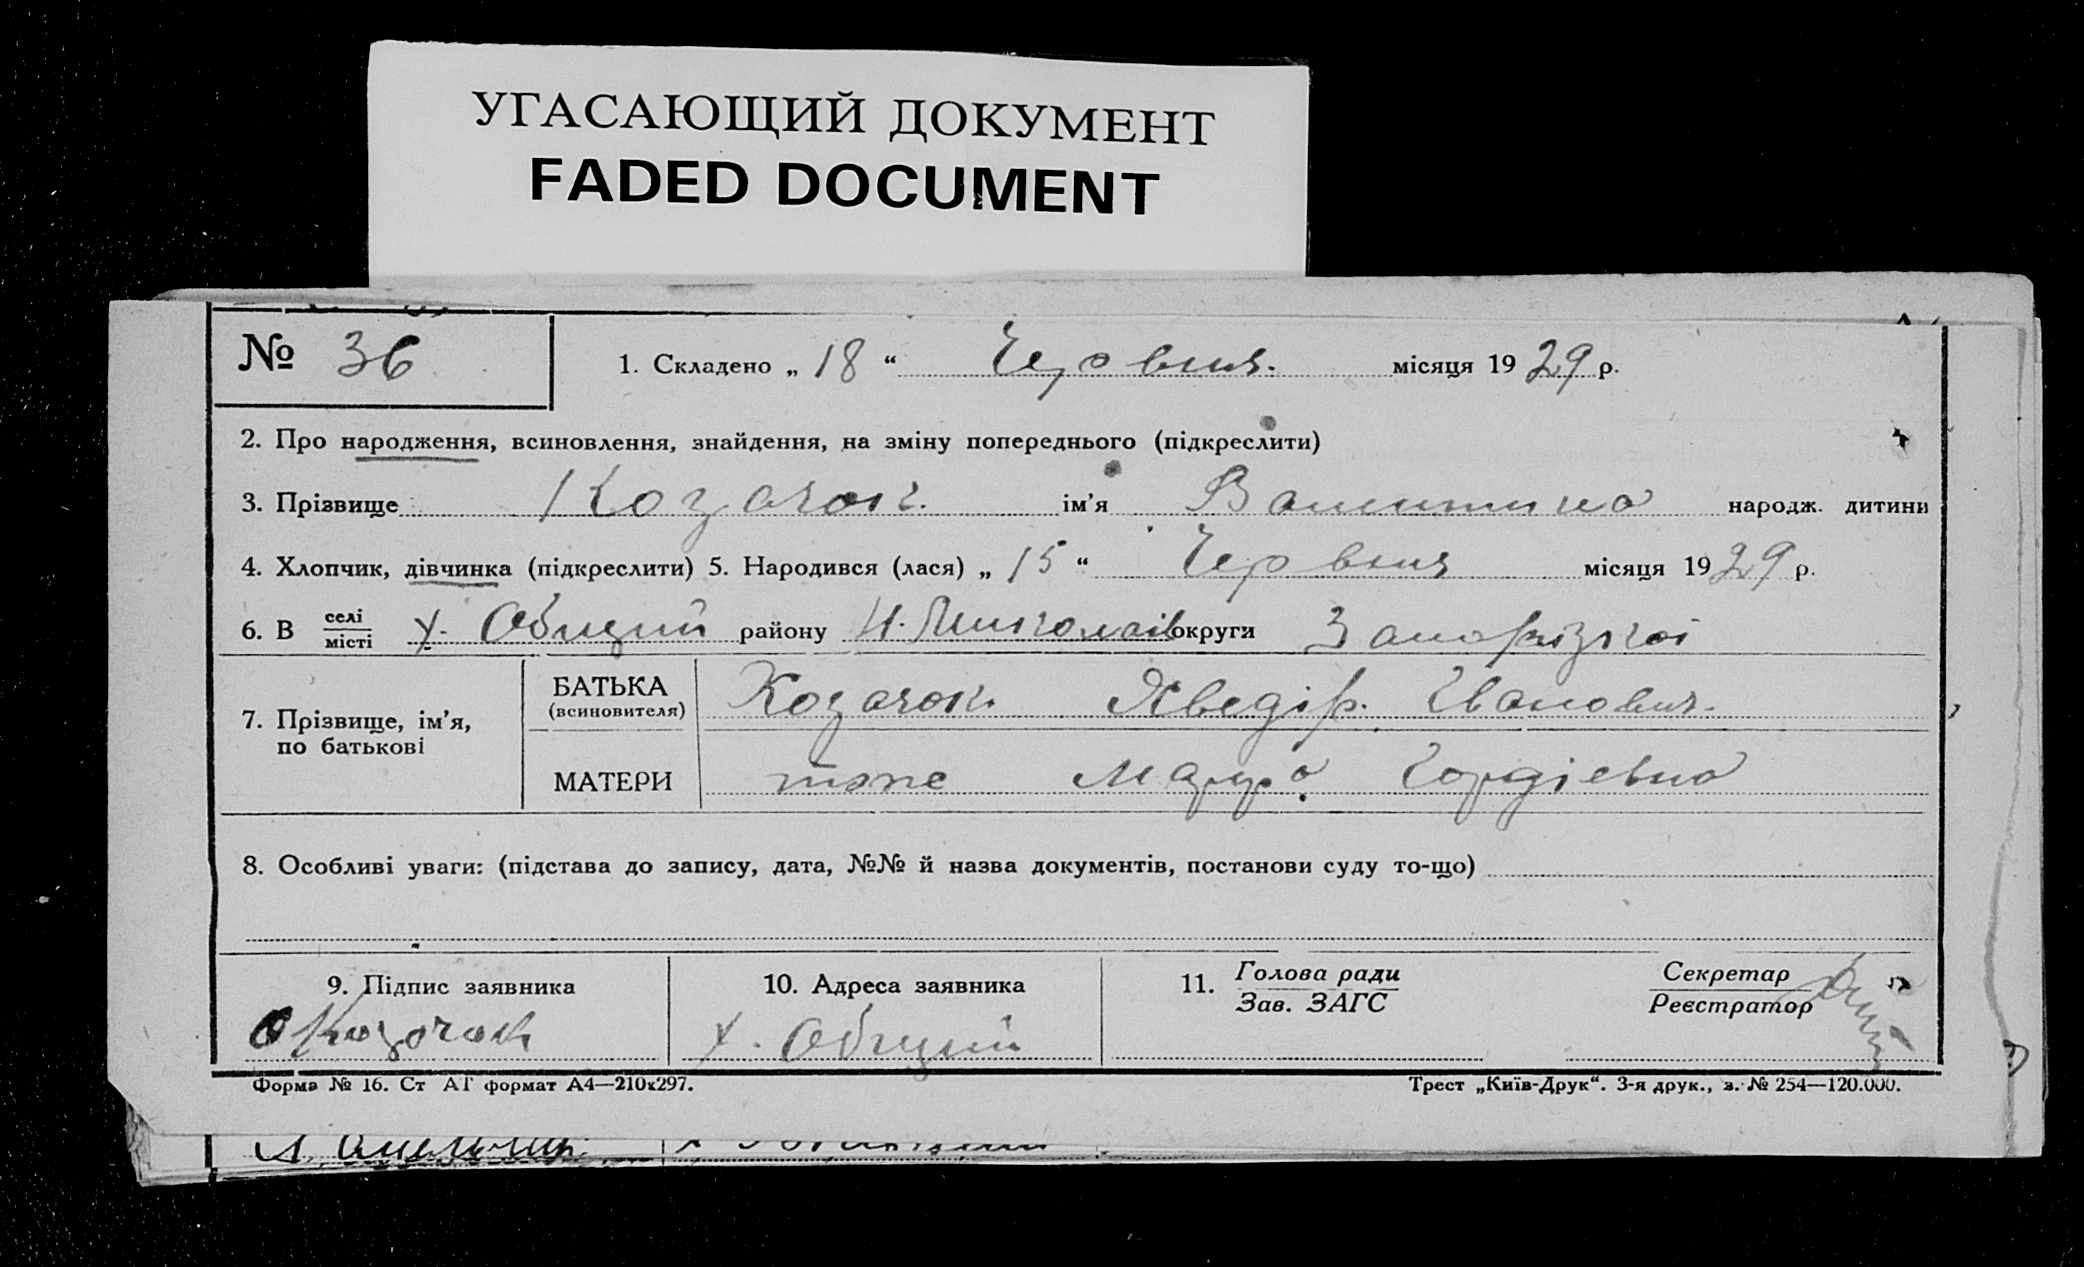 УГАСАЮЩИЙ ДОКУМЕНТ
FADED DOCUMENT
№ 36
1. Складено „ 18 “ Червня. місяця 19 29 р.
2. Про народження, всиновлення, знайдення, на зміну попереднього (підкреслити)
3. Прізвище Козачок. ім’я Валинтина народж. дитини
4. Хлопчик, дівчинка (підкреслити) 5. Народився (лася) „ 15 “ Червня місяця 19 29 р.
6. В селі/місті х. Общий району Н. Миколаїв округи Запорізької
7. Прізвище, ім’я, по батькові
БАТЬКА (всиновителя) Козачок Хведір. Іванович.
МАТЕРИ тоже Марфа Гордіевна
8. Особливі уваги: (підстава до запису, дата, №№ й назва документів, постанови суду то-що)
9. Підпис заявника
Козачок
10. Адреса заявника
х. Общий
11. Голова ради
Зав. ЗАГС
Секретар
Реєстратор
Форма № 16. Ст АТ формат А4—210x297.
Трест „Київ-Друк“. 3-я друк., з. № 254—120.000.